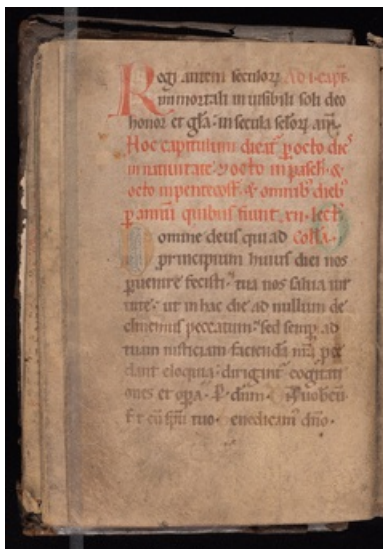 Regi autem seculorꝝ Ad i. capt̄.
immortali inuisibili soli deo
honor et gl̄a. in secula sclorꝝ am̄.
Hoc capitulum dicat̉ ꝑ octo dieˢ
in natiuitate. ⁊ octo in pasch̄. &
octo in pentecost̄. & omnibꝰ diebꝰ
ꝑ annū quibus fiunt .xii. lect̄.
Domine deus qui ad Coll̄a.
principium huius diei nos
ꝑuenire fecisti. tua nos salua uir
tute. ut in hac die ad nullum de
clinemus peccatum. sed semꝑ ad
tuam iusticiam faciendā
dant eloquia. dirigant̉ cogitati
ones et oꝑa. ꝑ. dn̄m.
Et cū sp̄u tuo. Benedicam̉ dn̄o.